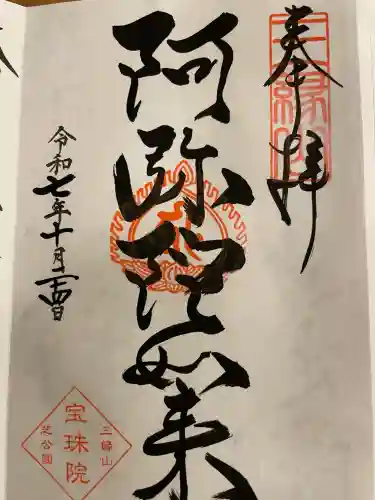 奉拝
阿弥陀如来
令和七年十月二四日
三縁山
宝珠院
芝公園